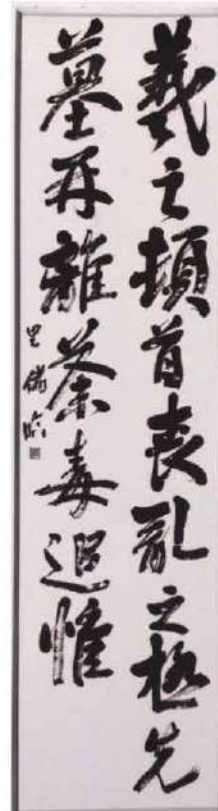 羲之頓首喪亂之極先
墓再離荼毒追惟